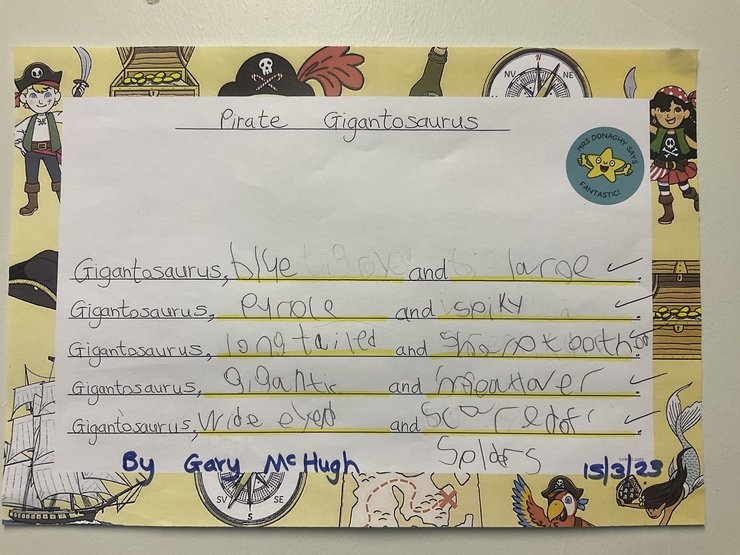 NV
NE
Pirate Gigantosaurus
MRS DONAGHY SAYS
FANTASTIC!
Gigantosaurus, blue and large.
Gigantosaurus, purple and spiky.
Gigantosaurus, longtailed and
Gigantosaurus, gigantic and meateater.
Gigantosaurus, Wide eyed and
By Gary McHugh
15/3/23
SV
S
SE